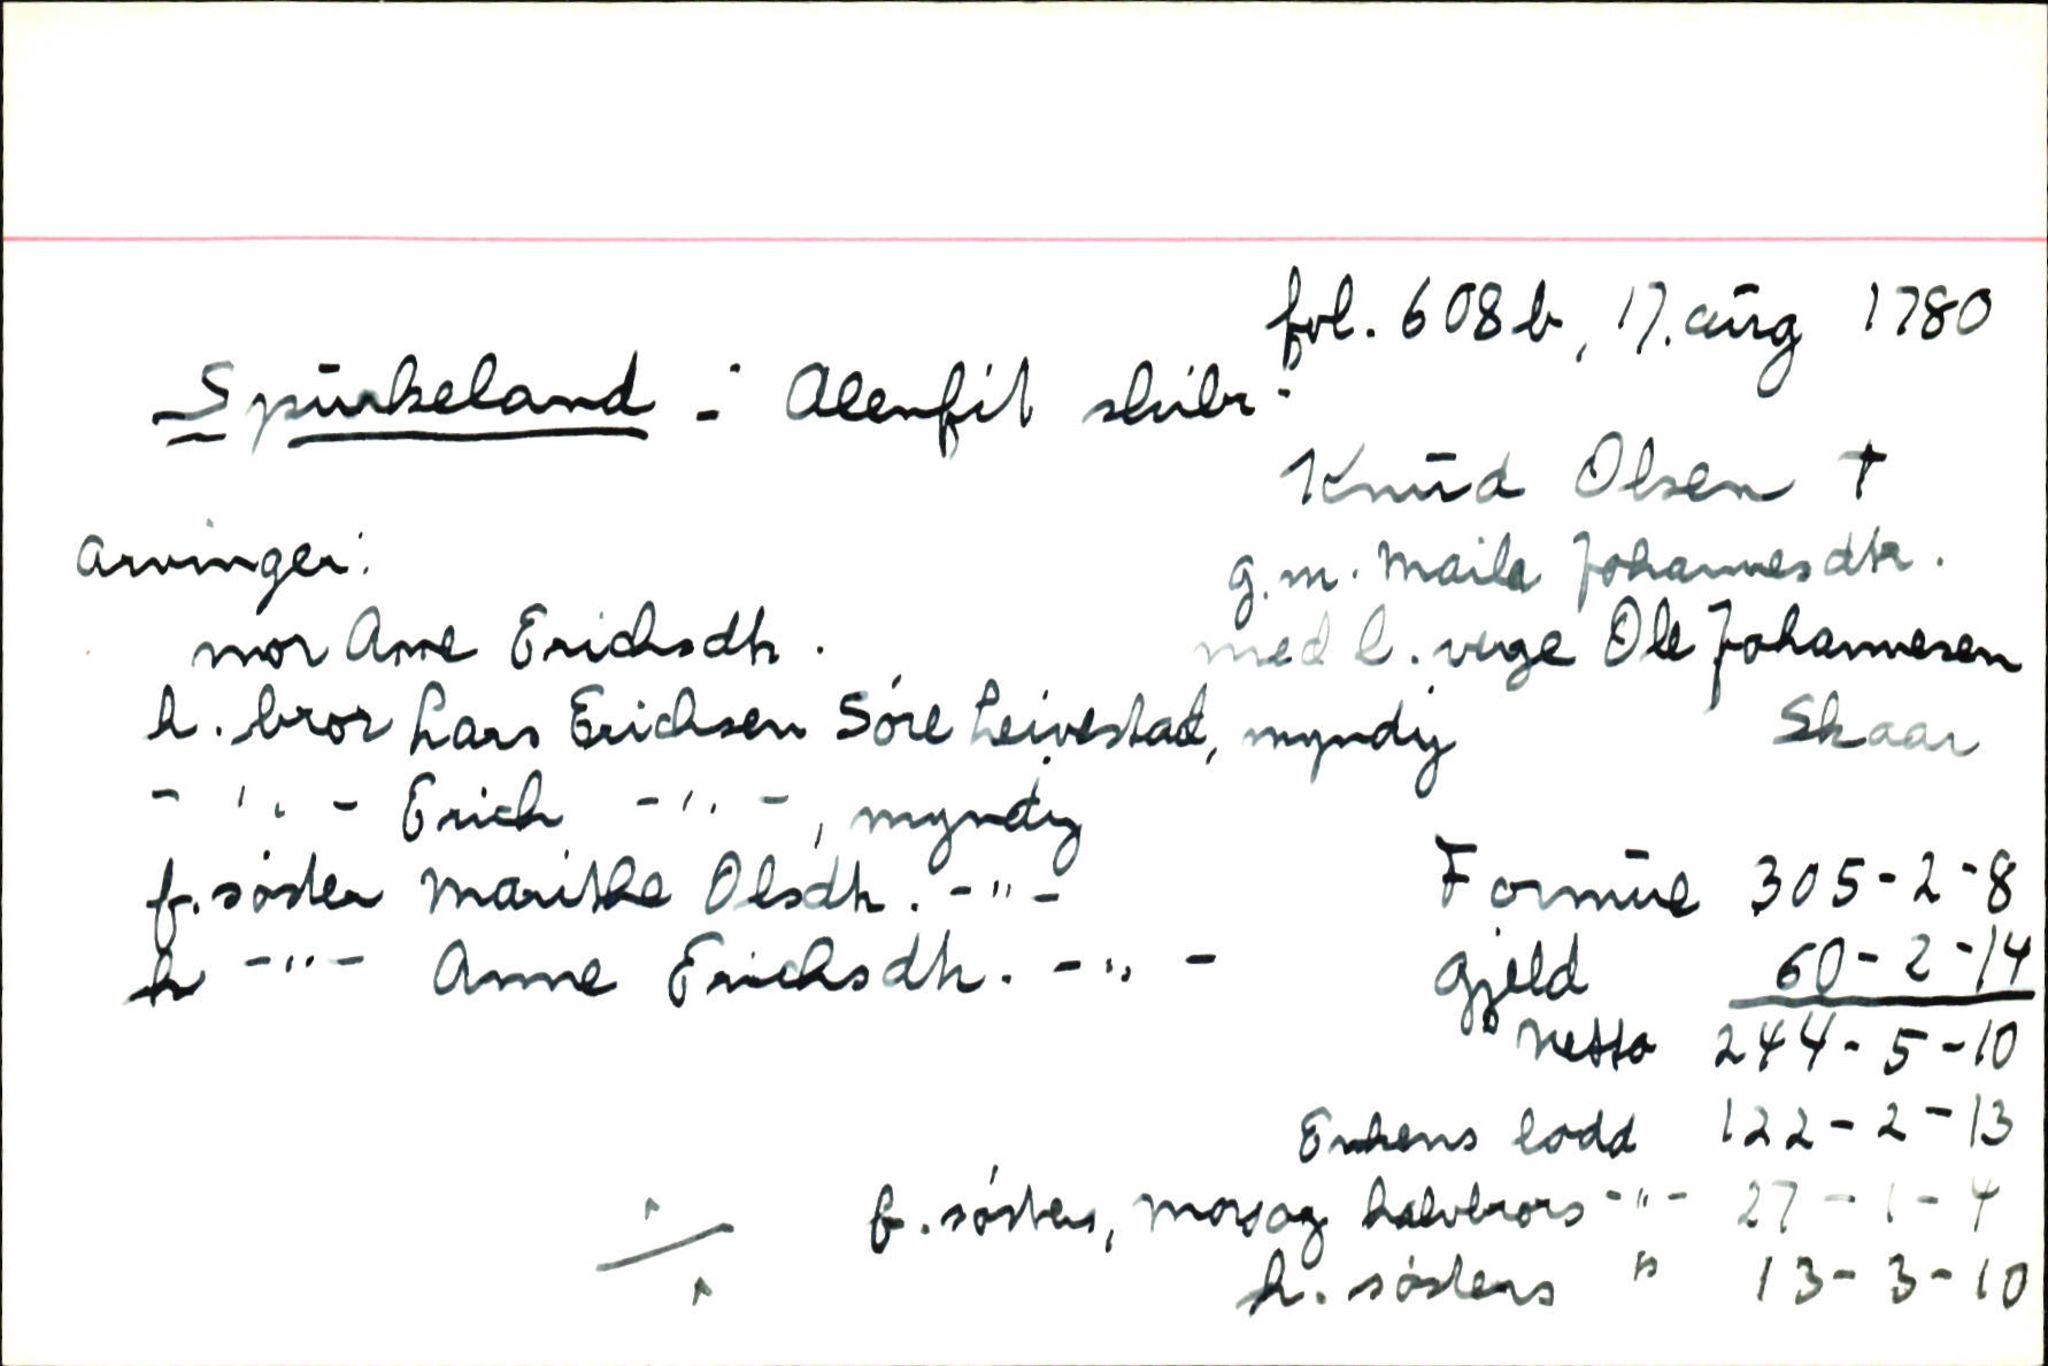 fol. 608b, 17. aug 1780
Spurkeland - Alenfit skibr -
Knud Olsen †
g.m. Maila Johannesdtr.
med l. verge Ole Johannesen
Skaar
Arvinger:
mor Ane Erichsdtr.
h. bror Lars Erichsen Söre Leivestad, myndig
- " - Erich - " -, myndig
f. söster Marithe Olsdtr. - " -
h - " - Anne Erichsdtr. - " -
Formue 305-2-8
Gjeld 60-2-14
Netto 244-5-10
Enkens lodd 122-2-13
f. sösters, mors og halvbrors - " - 27-1-4
h. sösters " 13-3-10